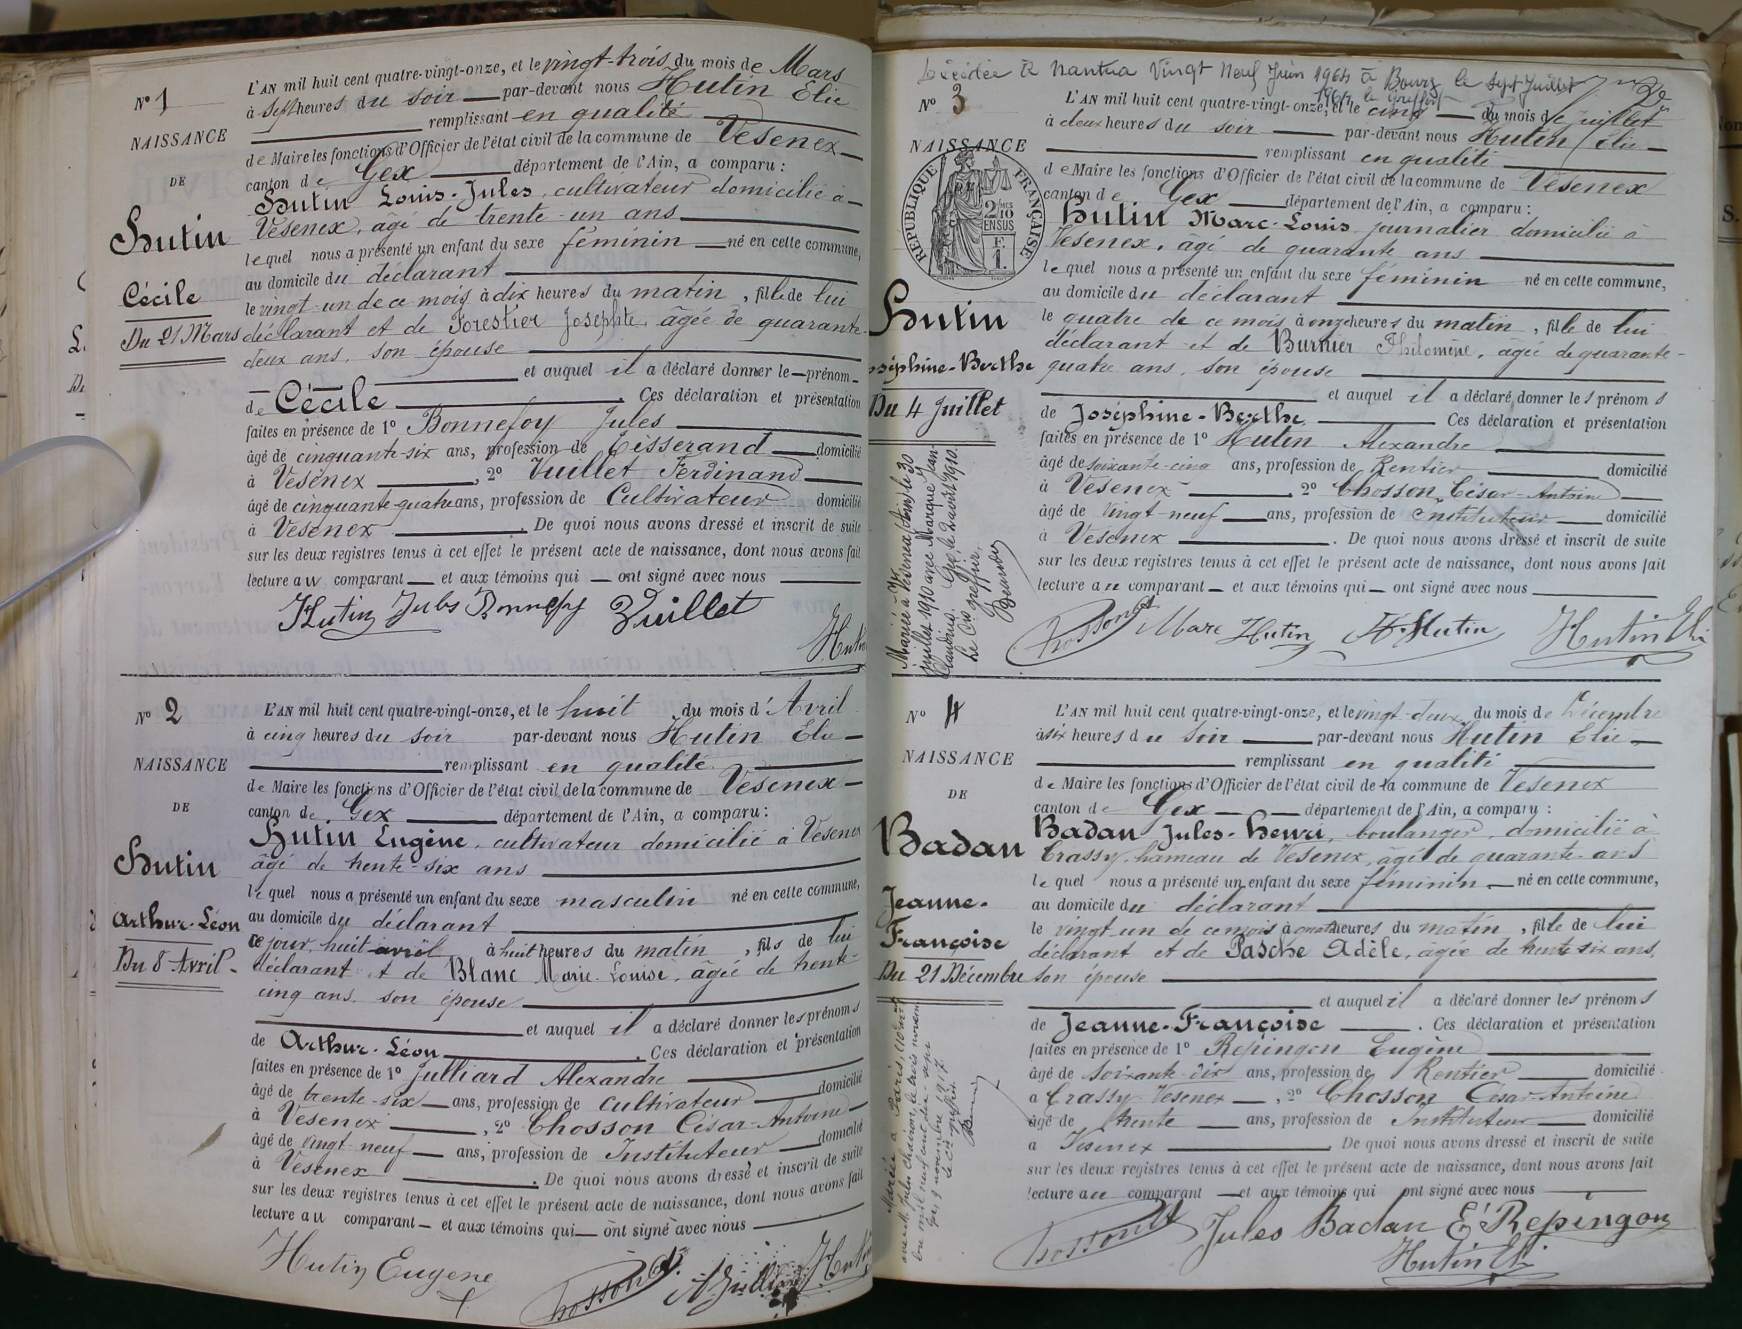 N° 1
NAISSANCE
DE
Hutin
Cécile
Du 21 Mars
L'AN mil huit cent quatre-vingt-onze, et le vingt-trois du mois de Mars
à sept heures du soir par-devant nous Hutin Elie
remplissant en qualité
de Maire les fonctions d'Officier de l'état civil de la commune de Vésenex
canton de Gex département de l'Ain, a comparu :
Hutin Louis-Jules, cultivateur domicilié à
Vésenex, âgé de trente-un ans
lequel nous a présenté un enfant du sexe féminin né en cette commune,
au domicile du déclarant
le vingt-un de ce mois à dix heures du matin, fille de lui
déclarant et de Forestier Josephte, âgée de quarante-
deux ans, son épouse
et auquel il a déclaré donner le prénom
de Cécile. Ces déclaration et présentation
faites en présence de 1° Bonnefoy Jules
âgé de cinquante-six ans, profession de Tisserand domicilié
à Vésenex, 2° Vuillet Ferdinand
âgé de cinquante-quatre ans, profession de Cultivateur domicilié
à Vesenex. De quoi nous avons dressé et inscrit de suite
sur les deux registres tenus à cet effet le présent acte de naissance, dont nous avons fait
lecture au comparant et aux témoins qui ont signé avec nous
Hutin Jules Bonnefoy Vuillet
Hutin
N° 2
NAISSANCE
DE
Hutin
Arthur-Léon
Du 8 Avril
L'AN mil huit cent quatre-vingt-onze, et le huit du mois d'Avril
à cinq heures du soir par-devant nous Hutin Elie
remplissant en qualité
de Maire les fonctions d'Officier de l'état civil de la commune de Vésenex
canton de Gex département de l'Ain, a comparu :
Hutin Eugène, cultivateur domicilié à Vésenex
âgé de trente-six ans
lequel nous a présenté un enfant du sexe masculin né en cette commune,
au domicile du déclarant
ce jour huit avril à huit heures du matin, fils de lui
déclarant et de Blanc Marie-Louise, âgée de trente-
cinq ans, son épouse
et auquel il a déclaré donner les prénoms
de Arthur-Léon. Ces déclaration et présentation
faites en présence de 1° Julliard Alexandre
âgé de trente-six ans, profession de cultivateur domicilié
à Vésenex, 2° Chosson César-Antoine
âgé de vingt-neuf ans, profession de Instituteur domicilié
à Vésenex. De quoi nous avons dressé et inscrit de suite
sur les deux registres tenus à cet effet le présent acte de naissance, dont nous avons fait
lecture au comparant et aux témoins qui ont signé avec nous
Hutin Eugene
Chosson A. Julliard Hutin
Décédée à Nantua Vingt Neuf Juin 1964 à Bourg le Sept Juillet
1964 le greffier
N° 3
NAISSANCE
RÉPUBLIQUE FRANÇAISE
2/10 EN SUS
F. 1.
Hutin
Joséphine-Berthe
Du 4 Juillet
Mariée à Vésenex
juillet 1910 avec Marque Jean
Claudius. Gex, le 2 août 1910.
Le Gis greffier,
L'AN mil huit cent quatre-vingt-onze, et le cinq du mois de Juillet
à deux heures du soir par-devant nous Hutin Elie
remplissant en qualité
de Maire les fonctions d'Officier de l'état civil de la commune de Vésenex
canton de Gex département de l'Ain, a comparu :
Hutin Marc-Louis journalier domicilié à
Vésenex, âgé de quarante ans
lequel nous a présenté un enfant du sexe féminin né en cette commune,
au domicile du déclarant
le quatre de ce mois à onze heures du matin, fille de lui
déclarant et de Burnier Philomène, âgée de quarante-
quatre ans, son épouse
et auquel il a déclaré donner les prénoms
de Joséphine-Berthe Ces déclaration et présentation
faites en présence de 1° Hutin Alexandre
âgé de soixante-cinq ans, profession de Rentier domicilié
à Vésenex, 2° Chosson César-Antoine
âgé de vingt-neuf ans, profession de instituteur domicilié
à Vésenex. De quoi nous avons dressé et inscrit de suite
sur les deux registres tenus à cet effet le présent acte de naissance, dont nous avons fait
lecture au comparant et aux témoins qui ont signé avec nous
Chosson Marc Hutin A. Hutin Hutin Elie
N° 4
NAISSANCE
DE
Badan
Jeanne-
Françoise
Du 21 Décembre
L'AN mil huit cent quatre-vingt-onze, et le vingt-deux du mois de Décembre
à six heures du soir par-devant nous Hutin Elie
remplissant en qualité
de Maire les fonctions d'Officier de l'état civil de la commune de Vésenex
canton de Gex département de l'Ain, a comparu :
Badan Jules-Henri, boulanger, domicilié à
Crassy, hameau de Vésenex, âgé de quarante ans
lequel nous a présenté un enfant du sexe féminin né en cette commune,
au domicile du déclarant
le vingt-un de ce mois à onze heures du matin, fille de lui
déclarant et de Pasche Adèle, âgée de trente-six ans,
son épouse
et auquel il a déclaré donner les prénoms
de Jeanne-Françoise. Ces déclaration et présentation
faites en présence de 1° Repingon Eugène
âgé de soixante-dix ans, profession de Rentier domicilié
à Crassy Vésenex, 2° Chosson César-Antoine
âgé de trente ans, profession de Instituteur domicilié
à Vésenex. De quoi nous avons dressé et inscrit de suite
sur les deux registres tenus à cet effet le présent acte de naissance, dont nous avons fait
lecture au comparant et aux témoins qui ont signé avec nous
Chosson Jules Badan E. Repingon
Hutin Elie